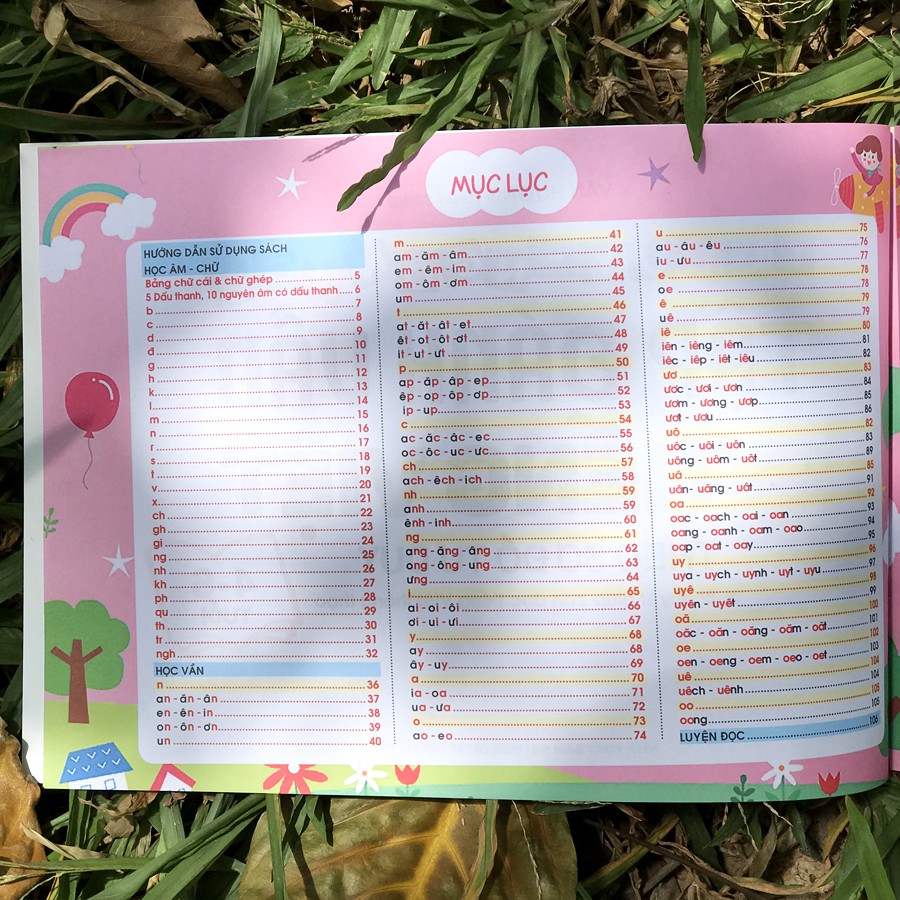 MỤC LỤC
HƯỚNG DẪN SỬ DỤNG SÁCH
HỌC ÂM - CHỮ
Bảng chữ cái & chữ ghép 5
5 Dấu thanh, 10 nguyên âm có dấu thanh 6
b 7
c 8
d 9
đ 10
g 11
h 12
k 13
l 14
m 15
n 16
r 17
s 18
t 19
v 20
x 21
ch 22
gh 23
gi 24
ng 25
nh 26
kh 27
ph 28
qu 29
th 30
tr 31
ngh 32
HỌC VẦN
n 36
an - ăn - ân 37
en - ên - in 38
on - ôn - ơn 39
un 40
m 41
am - ăm - âm 42
em - êm - im 43
om - ôm - ơm 44
um 45
t 46
at - ăt - ât - et 47
êt - ot - ôt - ơt 48
it - ut - ưt 49
p 50
ap - ăp - âp - ep 51
êp - op - ôp - ơp 52
ip - up 53
c 54
ac - ăc - âc - ec 55
oc - ôc - uc - ưc 56
ch 57
ach - êch - ich 58
nh 59
anh 59
ênh - inh 60
ng 61
ang - ăng - âng 62
ong - ông - ung 63
ưng 64
i 65
ai - oi - ôi 66
ơi - ui - ưi 67
y 68
ay 68
ây - uy 69
a 70
ia - oa 71
ua - ưa 72
o 73
ao - eo 74
u 75
au - âu - êu 76
iu - ưu 77
e 78
oe 78
ê 79
uê 79
iê 80
iên - iêng - iêm 81
iêc - iêp - iêt -iêu 82
ươ 83
ươc - ươi - ươn 84
ươm - ương - ươp 85
ươt - ươu 86
uô 82
uôc - uôi - uôn 83
uông - uôm - uôt 89
uâ 85
uân- uâng - uât 91
oa 92
oac - oach - oai - oan 93
oang - oanh - oam - oao 94
oap - oat - oay 95
uy 96
uya - uych - uynh - uyt - uyu 97
uyê 98
uyên - uyêt 99
oă 100
oăc - oăn - oăng - oăm - oăt 101
oe 102
oen - oeng - oem - oeo - oet 103
uê 104
uêch - uênh 104
oo 105
oong 105
LUYỆN ĐỌC 106